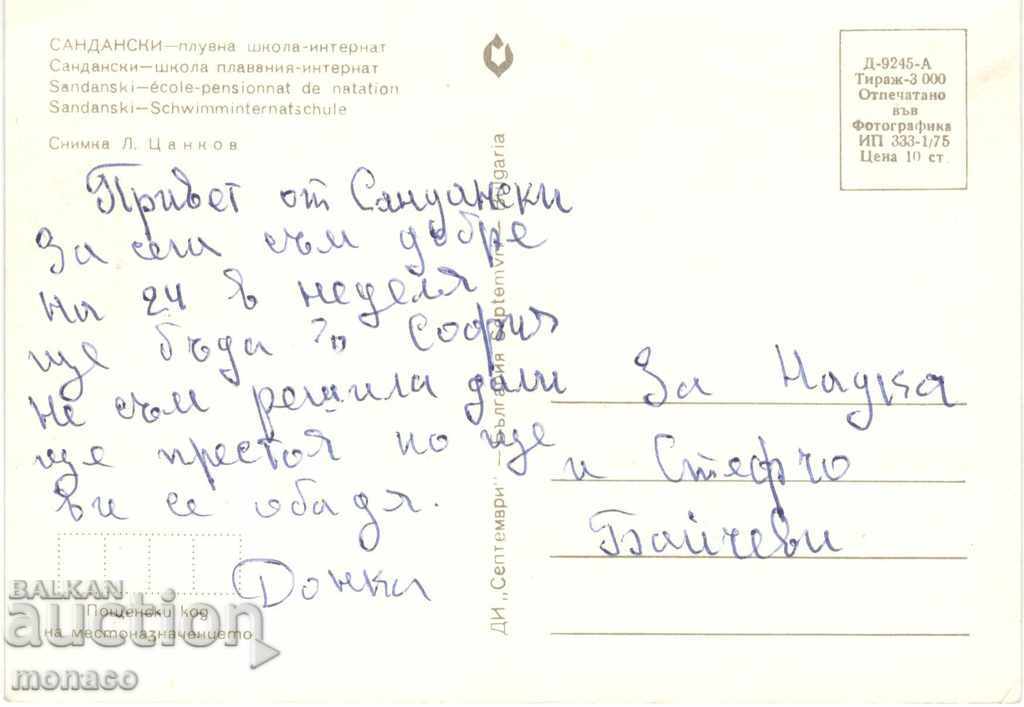 САНДАНСКИ—плувна школа-интернат
Сандански—школа плавания-интернат
Sandanski—école-pensionnat de natation
Sandanski—Schwimminternatschule
Снимка Л. Цанков
Д-9245-А
Тираж-3 000
Отпечатано
във
Фотографика
ИП 333-1/75
Цена 10 ст.
Привет от Сандански
За сега съм добре
на 24 в неделя
ще бъда в София
не съм решила дали
ще престоя но ще
ви се обадя.
Донка
За Надка
и Стефчо
Байчеви
ДИ „Септември" — България Septemvri — Bulgaria
Пощенски код
на местоназначението
BALKAN
auction
monaco